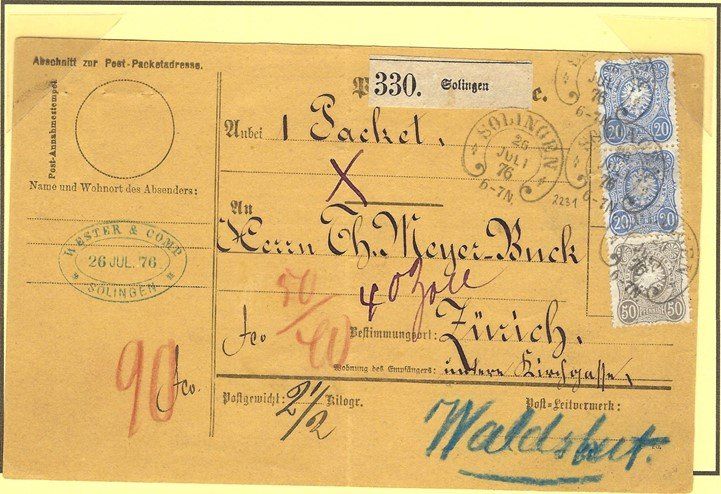 Abschnitt zur Post-Packetadresse.
Post-Annahmestempel
Name und Wohnort des Absenders:
WESTER & COMP
26 JUL. 76
SOLINGEN
90
fco.
330. Solingen
Anbei 1 Packet.
X
An
Herrn Th. Meyer-Buck
50/40
40 Zoll
fco
Bestimmungsort: Zürich,
Wohnung des Empfängers: untere Kirchgasse,
Postgewicht: 2 1/2 Kilogr.
Post-Leitvermerk:
Waldshut.
SOLINGEN
26
JULI
76
6-7N.
2231
JULI
76
6-7N.
20 20
76
6-7N
20 20
50 PFENNIG 50